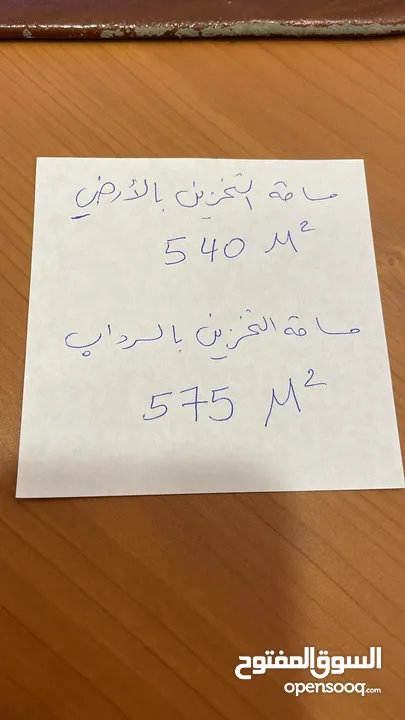 مساحة التخزين بالأرضي
540 M²
مساحة التخزين بالسرداب
575 M²
السوق المفتوح
opensooq.com